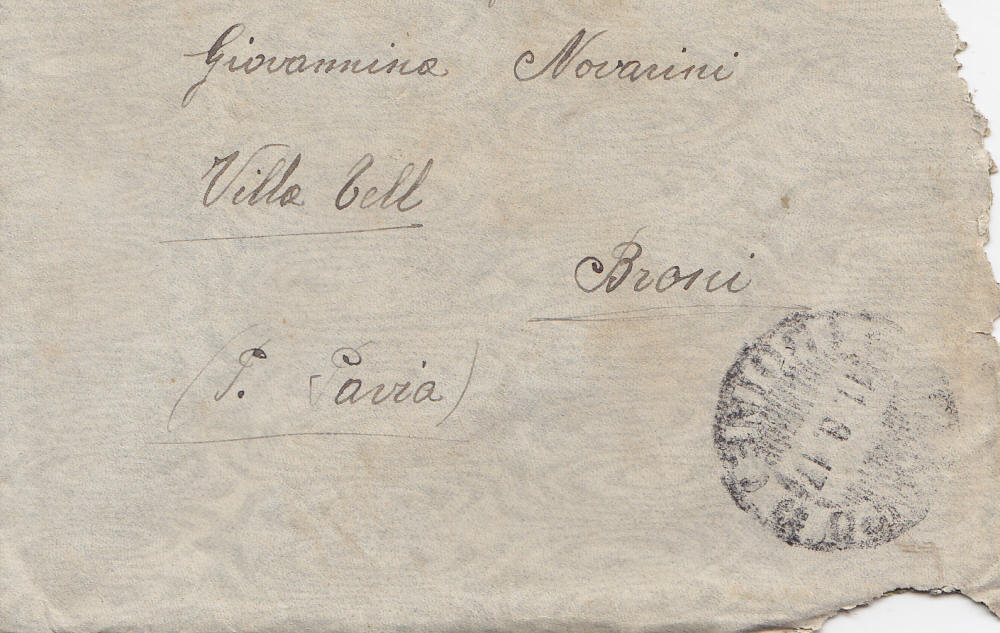 Giovannina Novarini
Villa Cell
Broni
(P. Pavia)
17. 8. 17